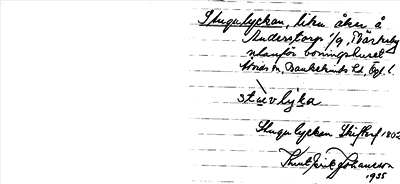 Stugulyckan, liten åker å
Anderstorp 1/9, Värkeby
utanför boningshuset
Bankekinds hd, Ögl.
stùvlỳka
Stugulyckan Skifteskf 1802
Knut Erik Johansson
1935